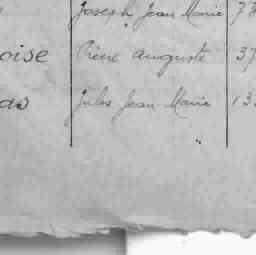 Joseph Jean Marie 73
oise Pierre Auguste 37
as Jules Jean Marie 13